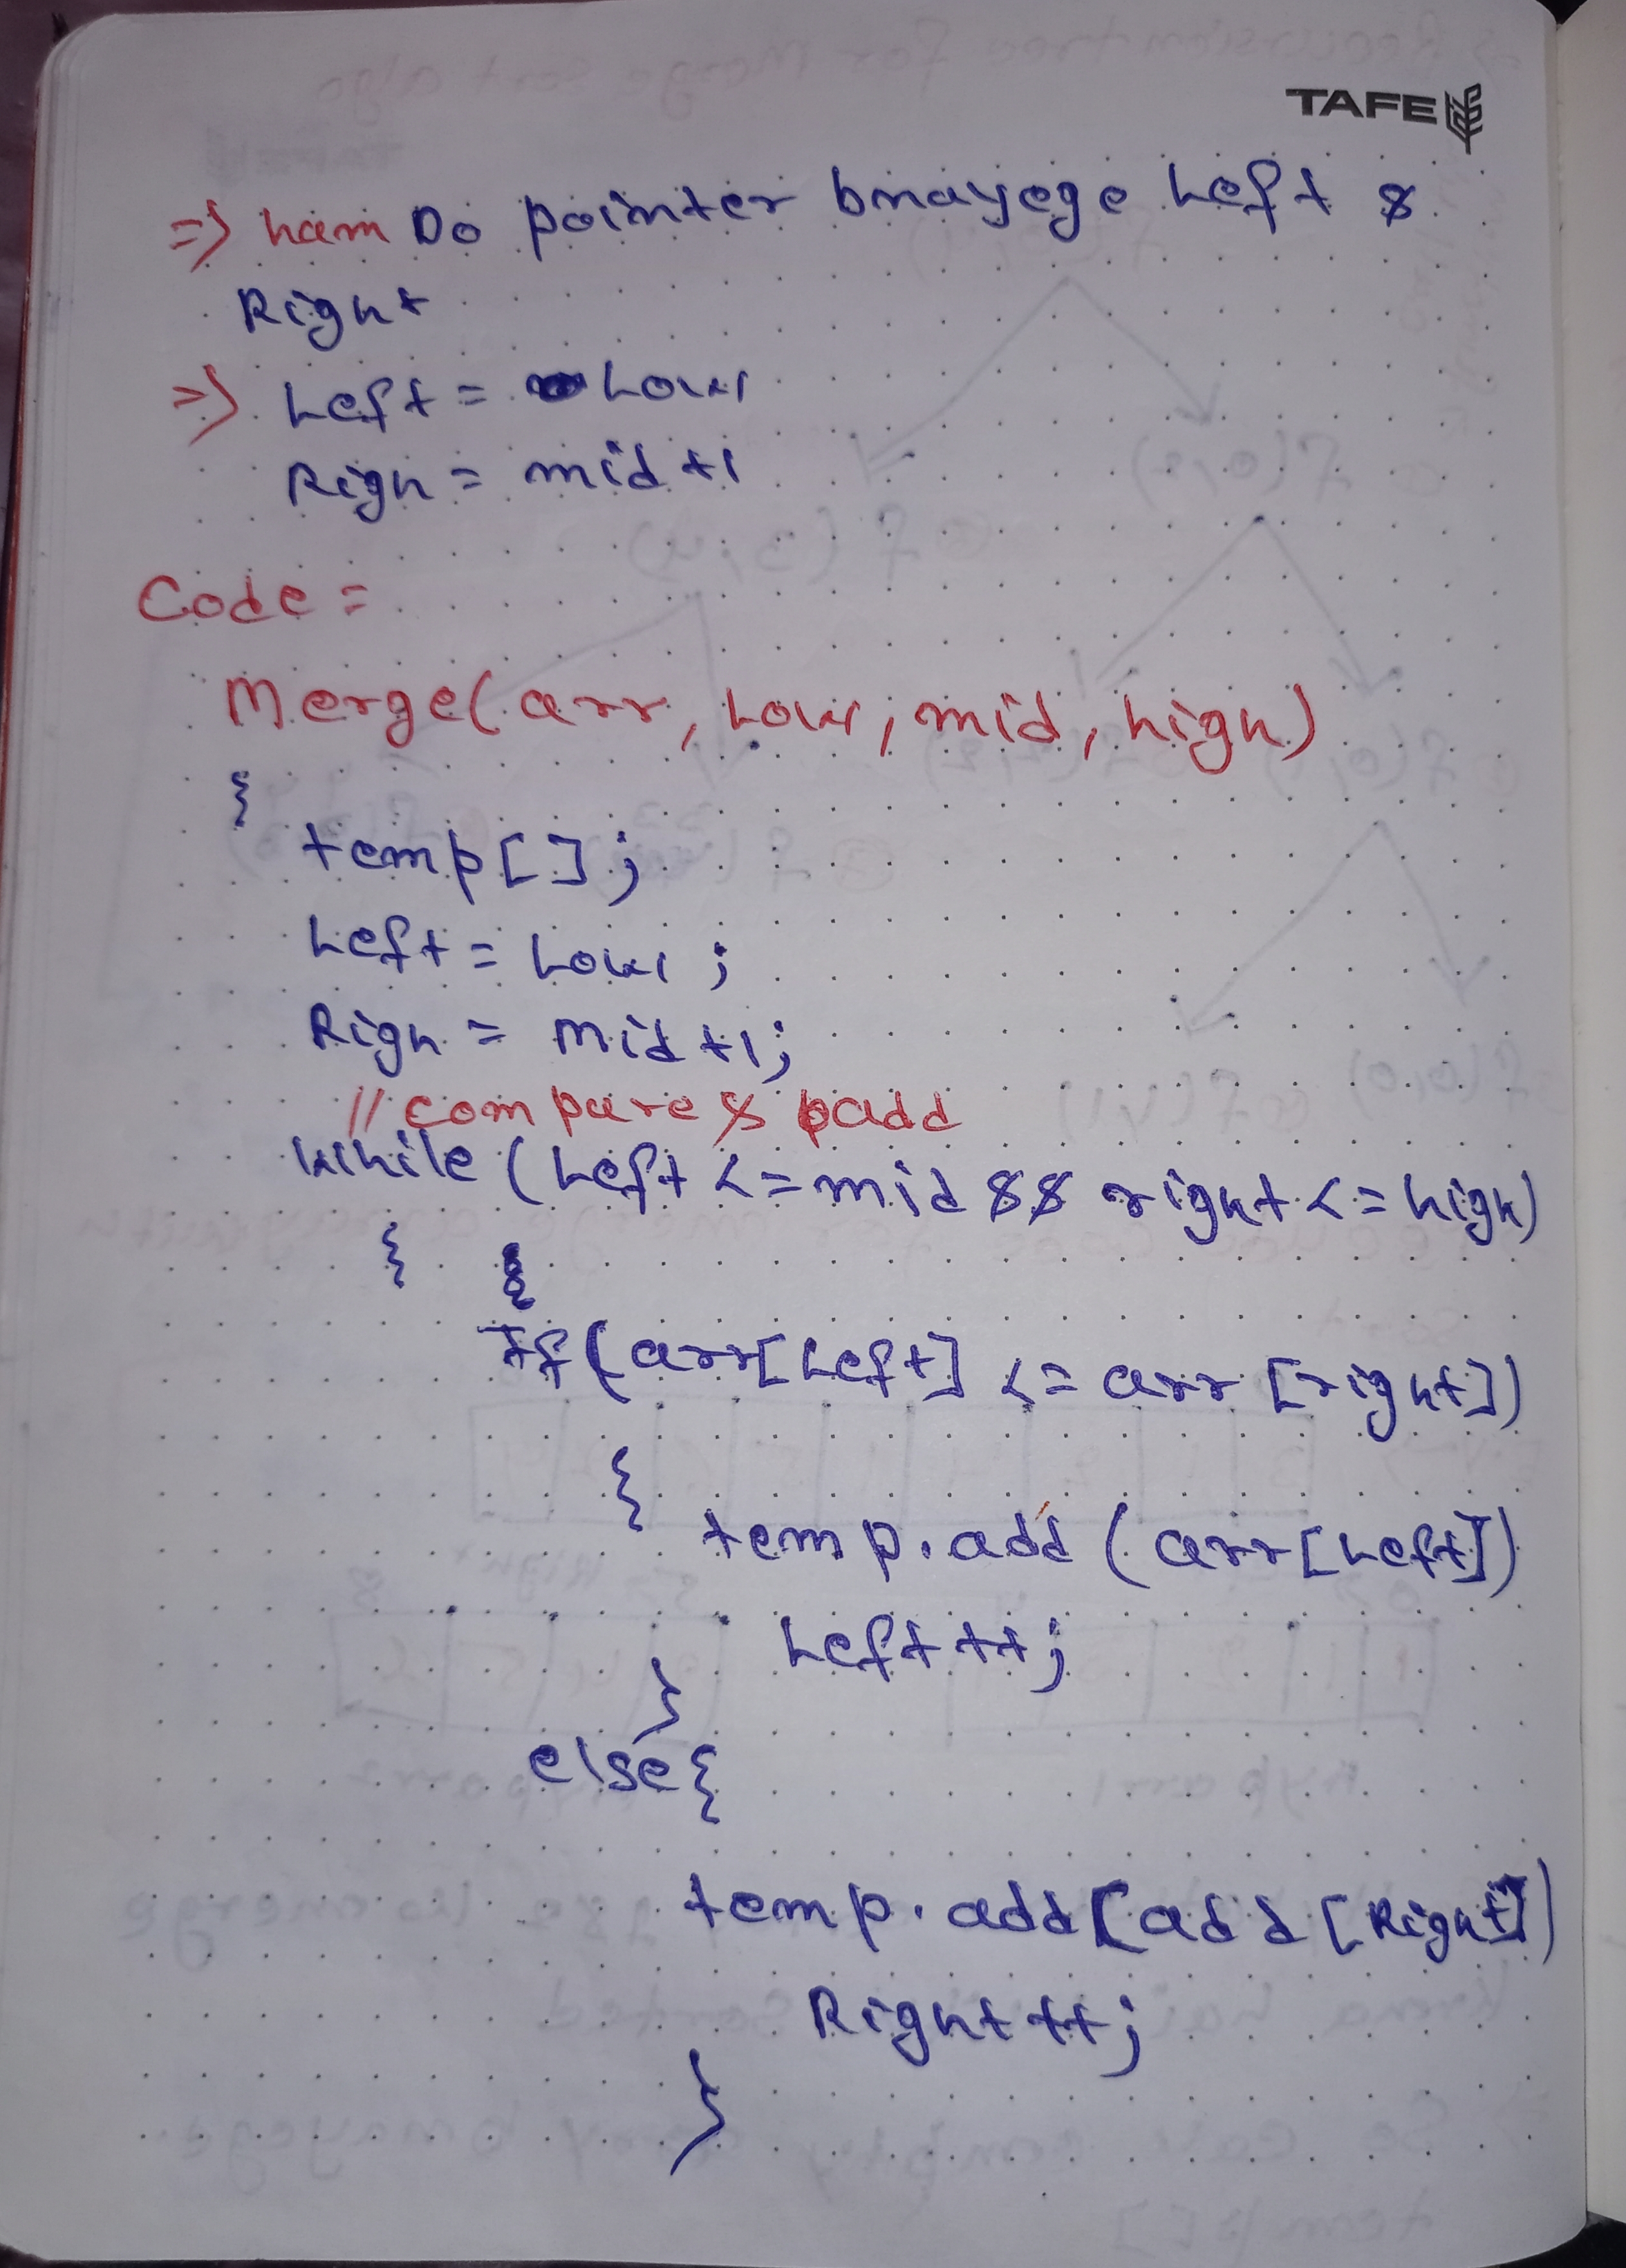 TAFE
=> ham Do pointer bnayege Left &
Right
=> Left = Low
Righ = mid +1
Code =
Merge(arr, Low, mid, high)
{
temp[];
Left = Low ;
Righ = mid +1;
// compare & add
while (Left <= mid && right <= high)
{
If (arr[Left] <= arr [right])
{
temp.add (arr[Left])
Left ++;
}
else {
temp.add(add [Right])
Right ++;
}